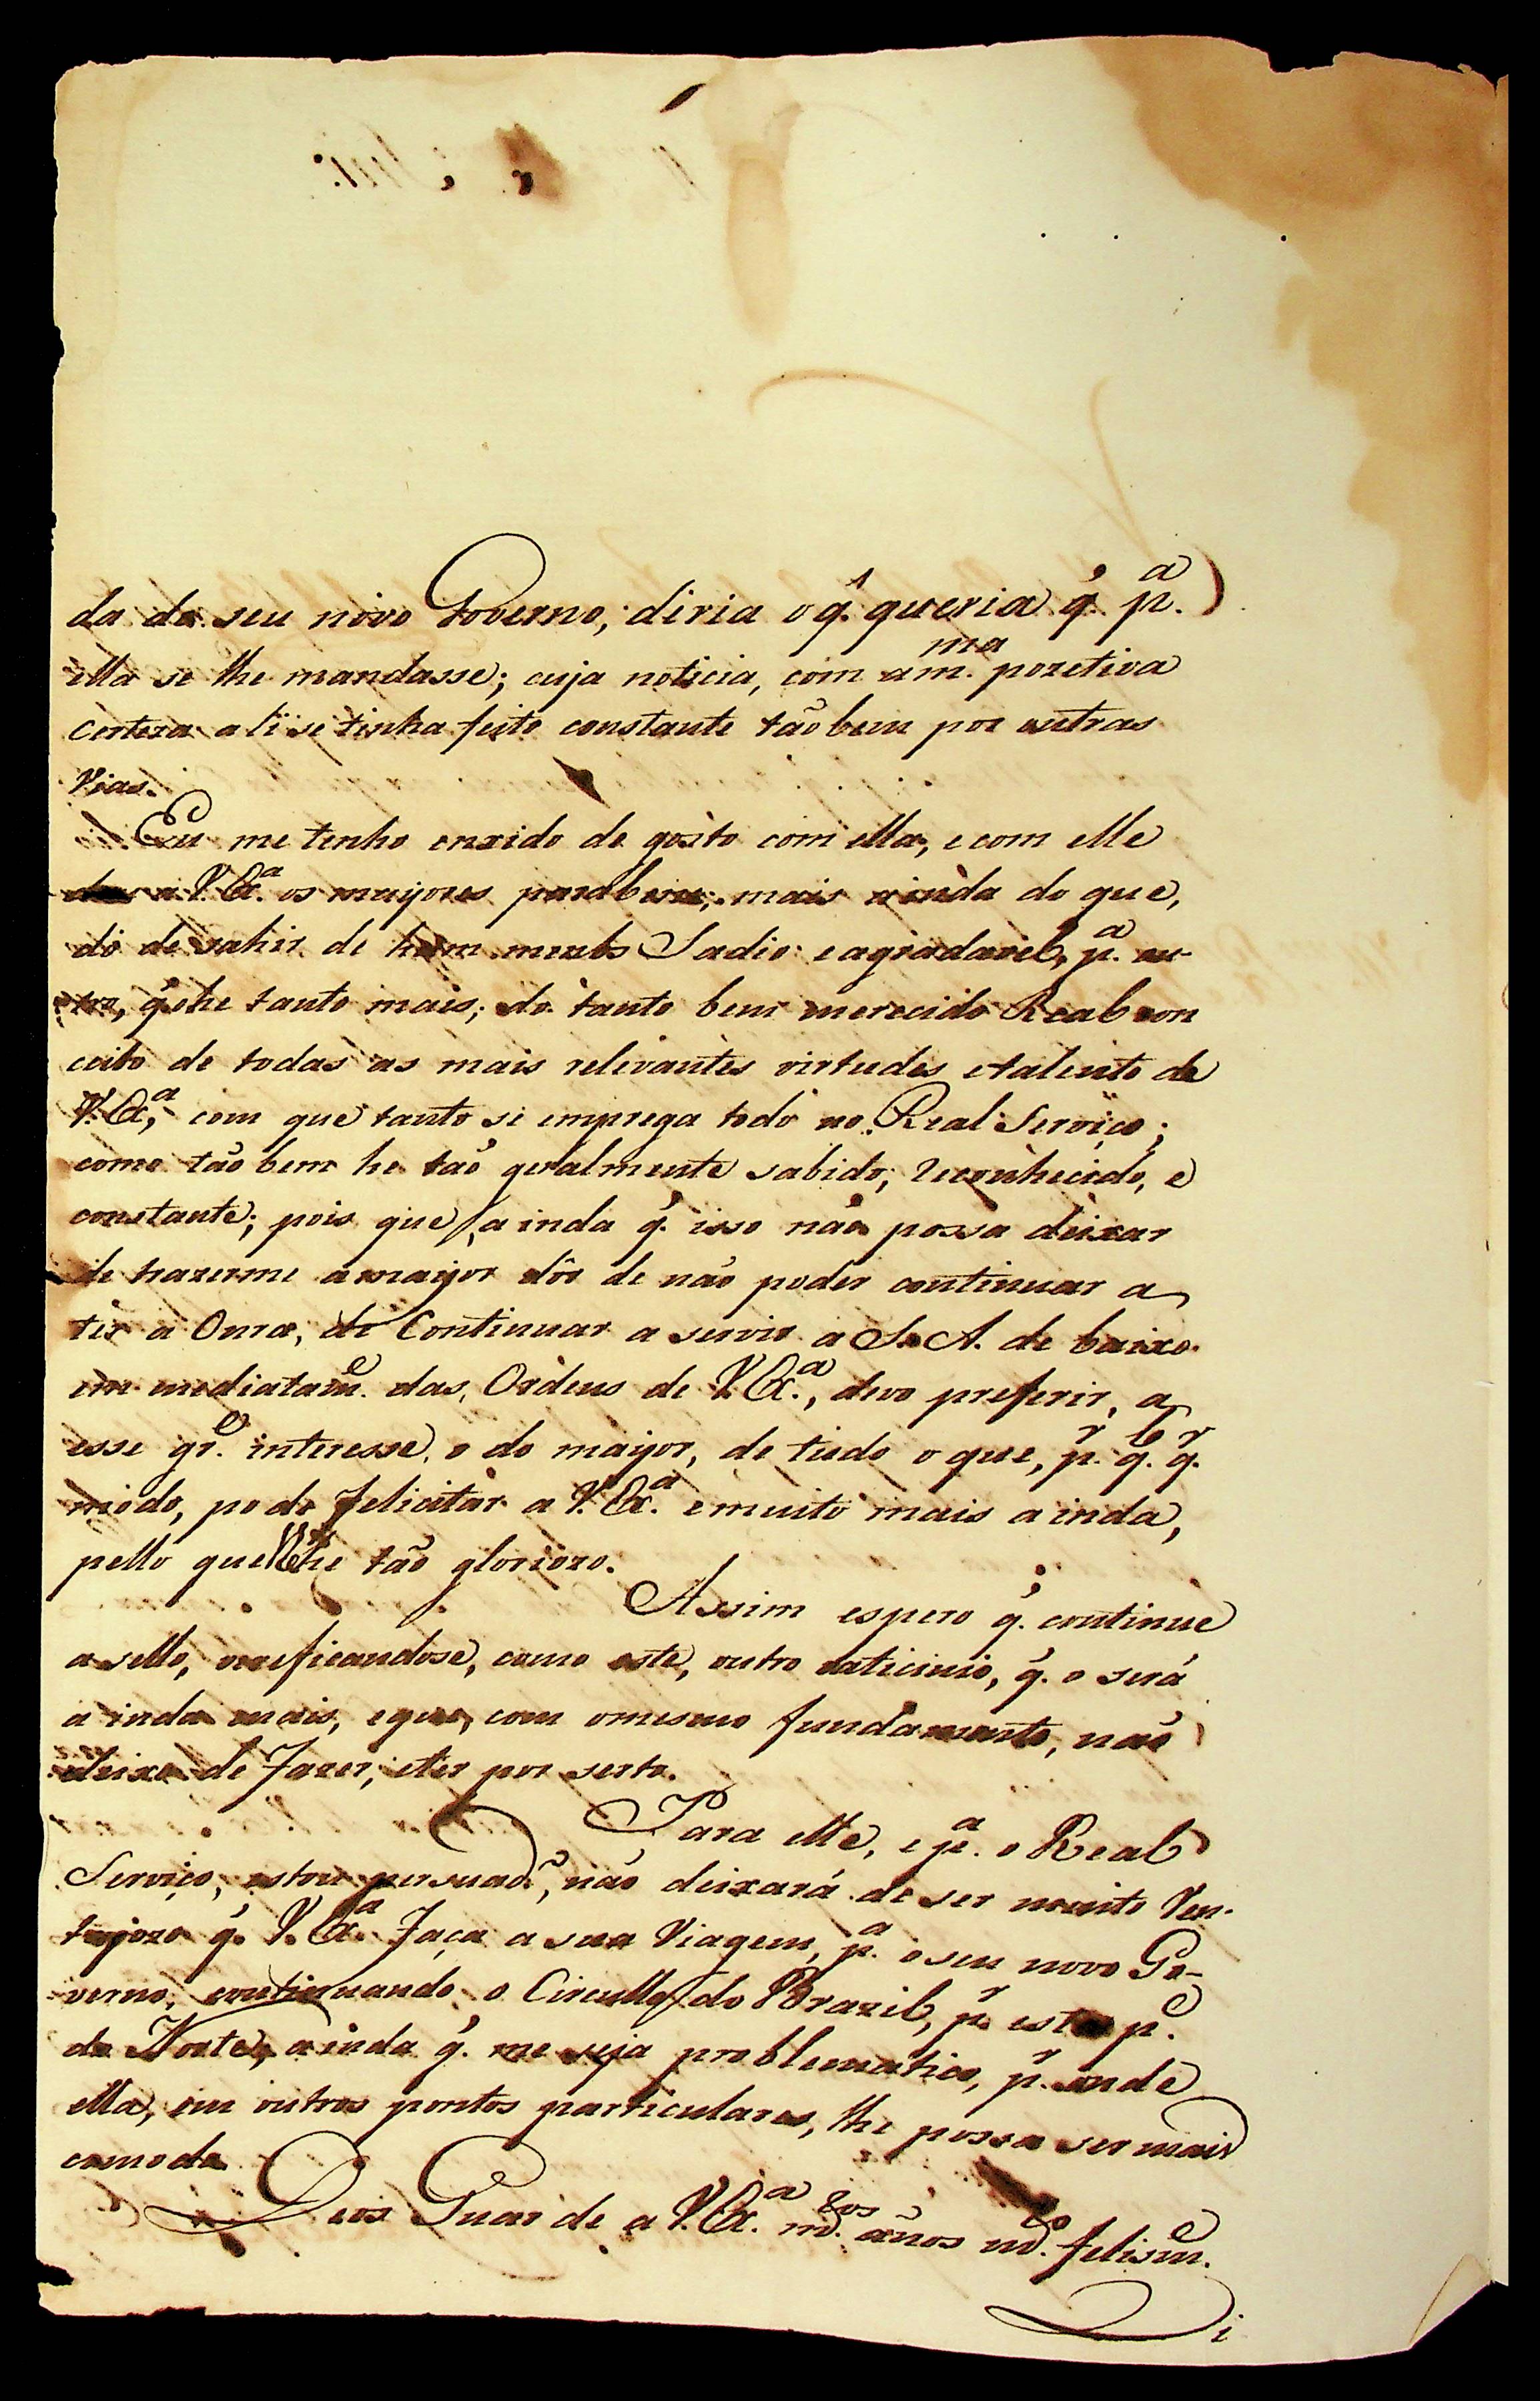 da do seu novo Governo, diria o q̂. queria q̃. p.ª
ella se lhe mandasse; cuja noticia, com a m.ma pozetiva
certeza ali se tinha feito constante tãobem por outras
Vias.
Eu me tenho enxido de gosto com ella, e com elle
dou a V. Ex.ª os maiyores parabens; mais ainda do que,
do de sahir de hum menos Sadio e agradavel, p.ª ou-
tro, q̃ o he tanto mais; do tanto bem merecido Real con
ceito de todas as mais relevantes virtudes e talento de
V. Ex.ª, com que tanto se emprega todo no Real Serviço;
como tão bem he tão geralmente sabido, reconhecido, e
constante; pois que, ainda q̃. isso não possa deixar
de trazerme a maiyor dôr de não poder continuar a
ter a Onra, de Continuar a servir a S. A. de baixo
immediatam.e das Ordens de V. Ex.ª, devo preferir, a
esse gr.e interesse, o do maiyor, de tudo o que, p.r q.l q.r
modo, pode felicitar a V. Ex.ª e muito mais ainda,
pello que lhe he tão gloriozo.
Assim espero q̃. continue
a sello, vereficandose, como este, outro vaticinio, q̃. o será
ainda mais, e que, com o mesmo fundamento, não
deixo de fazer, e ter por serto.
Para elle, e p.ª o Real
Serviço, estou persuad.o, não deixará de ser muito Ven-
tajozo q̃. V. Ex.ª Faça a sua Viagem, p.ª o seu novo Go-
verno, continuando o Circullo do Brazil, p.r esta p.e
do Norte, ainda q̃. me seja problematico, p.r onde
ella, em outros pontos particulares, lhe possa ser mais
comoda.
Deos Guarde a V. Ex.ª m.tos ãnos m.to felism.e
Di